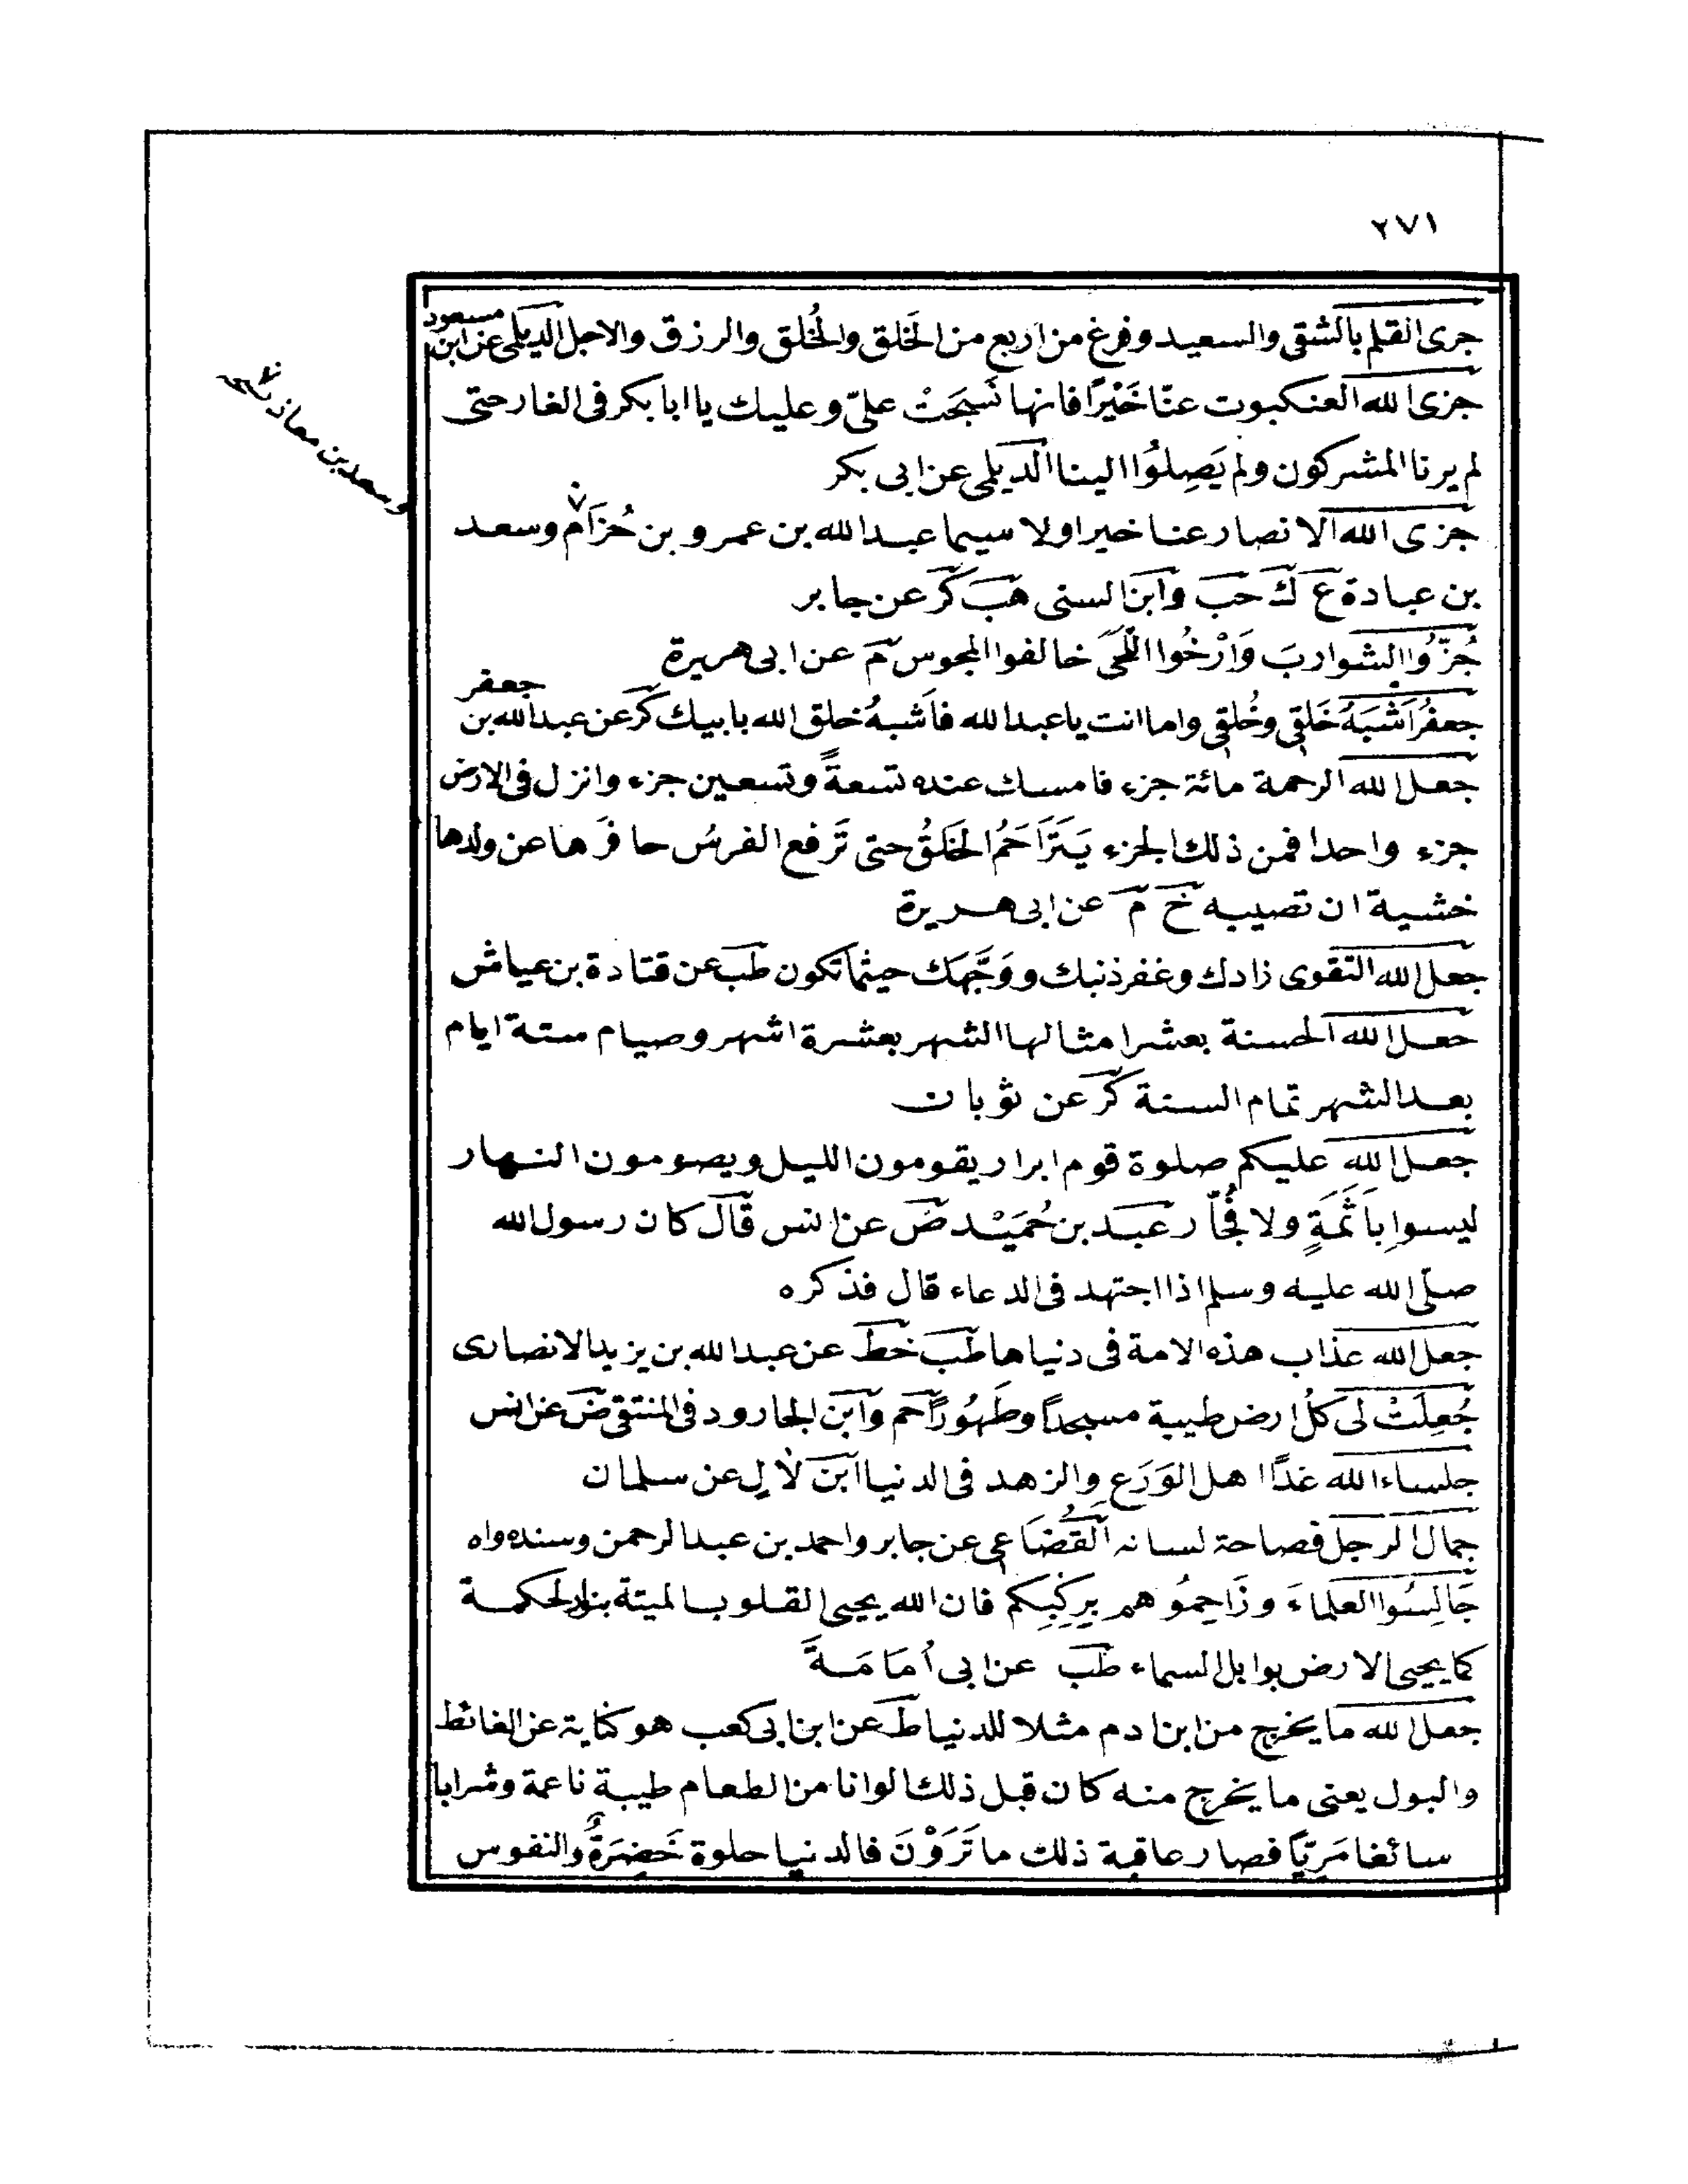 ٢٧١
جرى القلم بالشقى والسعيد وفرغ من اربع من الخَلق والخُلق والرزق والاجل الديلمى عن ابن مسعود
جزى الله العنكبوت عنّا خَيْرًا فانها نَسَجَتْ علىّ وعليك يا ابا بكر فى الغار حتى
لم يرنا المشركون ولم يَصِلُوا الينا الديلمى عن ابى بكر
جزى الله الانصار عنا خيرا ولا سيما عبد الله بن عمرو بن حُزَام وسعد
وسعد بن معاذ
بن عبادة ع ك حب وابن السنى هب كر عن جابر
جُزُّوا الشوارب وَأَرْخُوا اللَّحَى خالفوا المجوس م عن ابى هريرة
جعفر اَشْبَهُ خَلقى وخُلقى واما انت يا عبد الله فاَشبهُ خلق الله بابيك كر عن عبد الله بن جعفر
جعل الله الرحمة مائة جزء فامسك عنده تسعةً وتسعين جزء وانزل فى الارض
جزء واحدا فمن ذلك الجزء يَتَرَاحَمُ الخَلقُ حتى تَرفع الفرسُ حافرَها عن ولدها
خشية ان تصيبه خ م عن ابى هريرة
جعل الله التقوى زادك وغفر ذنبك ووَجَّهَك حيثما تكون طب عن قتادة بن عياش
جعل الله الحسنة بعشر امثالها الشهر بعشرة اشهر وصيام ستة ايام
بعد الشهر تمام السنة كر عن ثوبان
جعل الله عليكم صلوة قوم ابرار يقومون الليل ويصومون النهار
ليسوا بِاَثَمَةٍ ولا فُجَّار عبد بن حُمَيْد ض عن انس قال كان رسول الله
صلّى الله عليه وسلم اذا اجتهد فى الدعاء قال فذكره
جعل الله عذاب هذه الامة فى دنياها طب خط عن عبد الله بن يزيد الانصارى
جُعِلَتْ لى كلُ ارض طيبة مسجداً وطَهُوراً حم وابن الجارود فى المنتقى ض عن انس
جلساء الله غدًا اهل الوَرَعِ والزهد فى الدنيا ابن لالٍ عن سلمان
جمال الرجل فصاحة لسانه القُضَاعى عن جابر واحمد بن عبد الرحمن وسنده واه
جَالِسُوا العلماءَ وزَاحِمُوهم بِرِكَبِكم فان الله يحيى القلوب الميتة بنور الحكمة
كما يحيى الارض بوابل السماء طب عن ابى اُمَامَةَ
جعل الله ما يخرج من ابن ادم مثلا للدنيا ط عن ابن ابى كعب هو كناية عن الغائط
والبول يعنى ما يخرج منه كان قبل ذلك الوانا من الطعام طيبة ناعمة وشرابا
سائغا مَرِيًّا فصار عاقبة ذلك ما تَرَوْنَ فالدنيا حلوة خَضِرَةٌ والنفوس